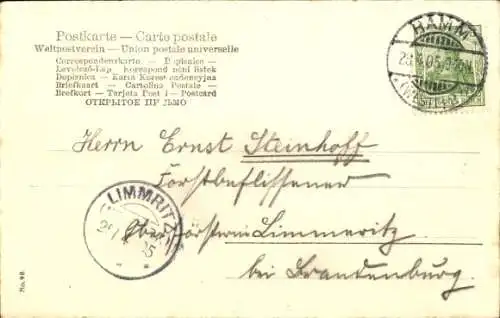 Postkarte – Carte postale
Weltpostverein – Union postale universelle
Correspondenzkarte – Dopisnice –
Levelező-Lap – Korespond nční listek
Dopisnica – Karta Korespondencyjna
Briefkaart – Cartolina Postale –
Brefkort – Tarjeta Post l – Postcard
ОТКРЫТОЕ ПИ ЬМО
HAMM
(WESTF.)
Herrn Ernst Steinhoff
Forstbeflissener
Oberförsterei Limmeritz
bei Brandenburg.
LIMMRITZ
No. 98.